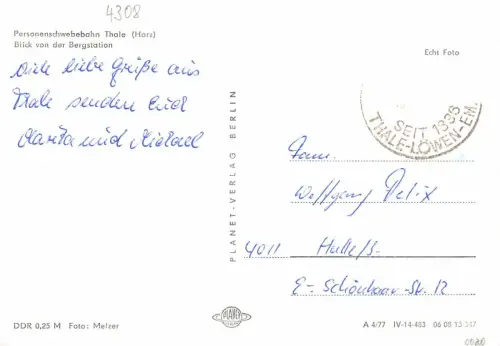 4308
Personenschwebebahn Thale (Harz)
Blick von der Bergstation
Echt Foto
Viele liebe Grüße aus
Thale senden Euch
Marita und Michael
SEIT 1338
THALE-LÖWEN-EM.
PLANET-VERLAG BERLIN
Fam.
Wolfgang Felix
4011 Halle/S.
E.-Schönhaar-Str. 12
PLANET
DDR 0,25 M Foto: Melzer
A 4/77 IV-14-483 06 08 13 317